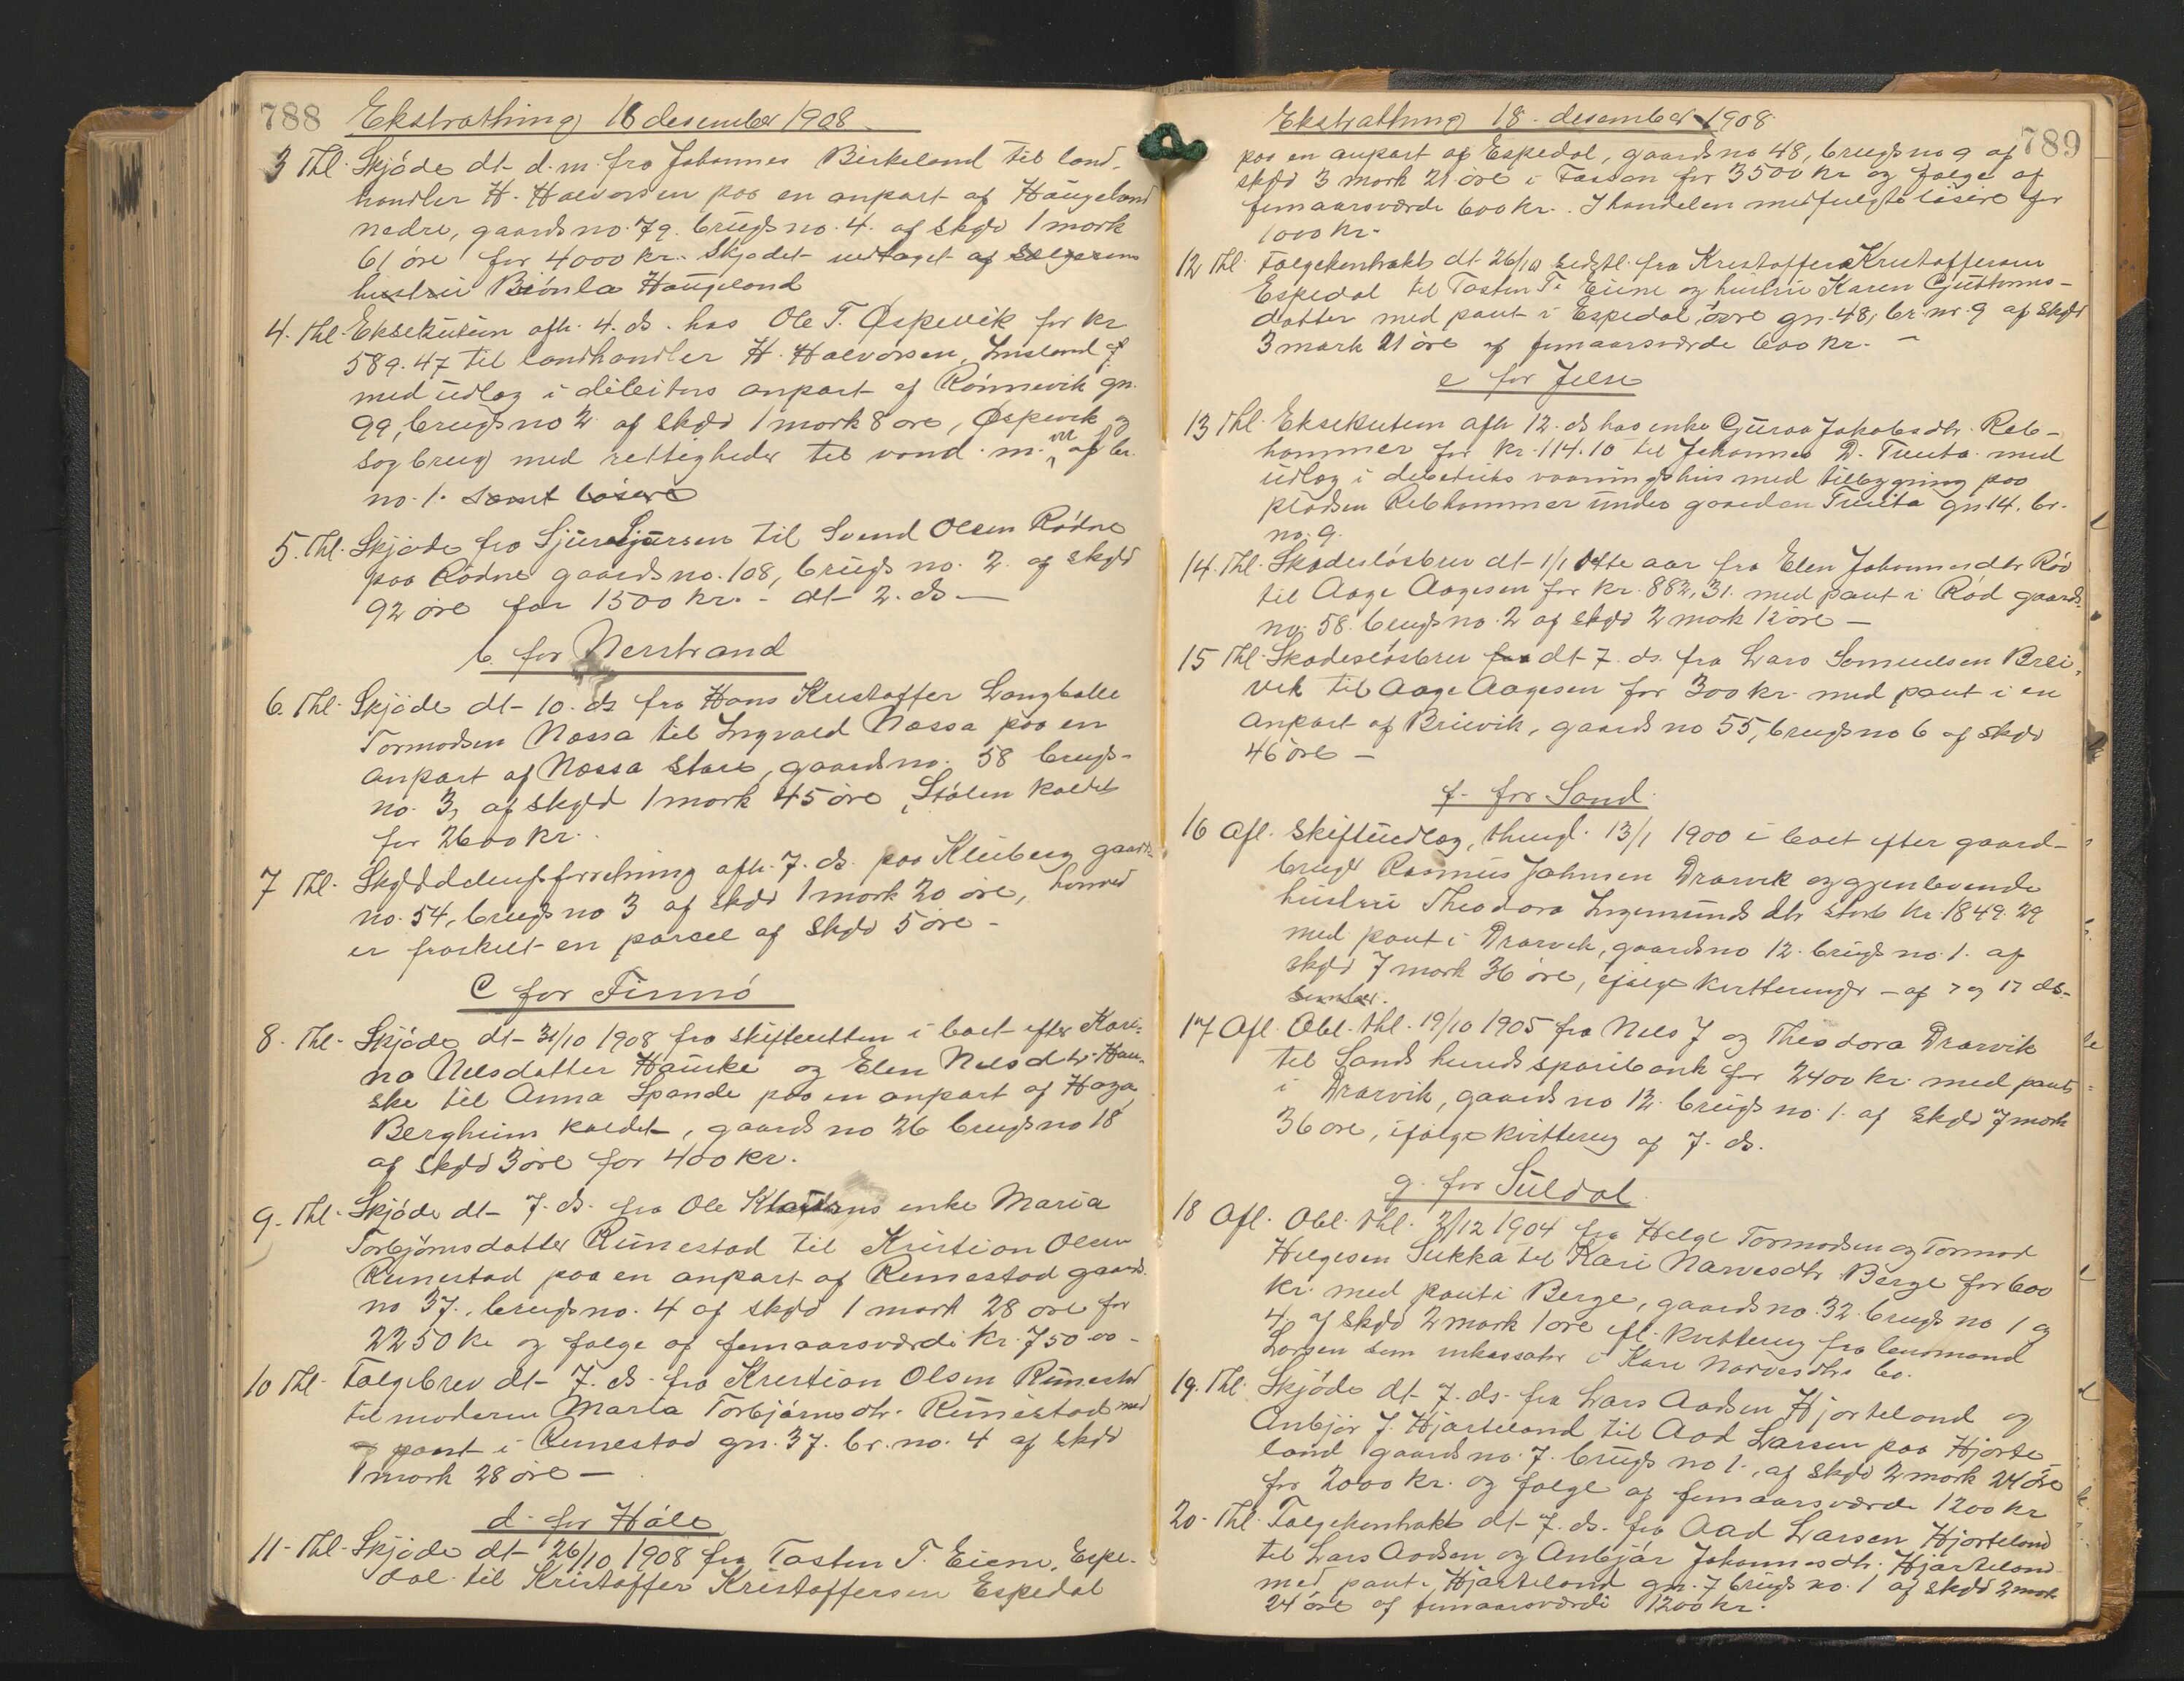 788 Ekstrathing 18 desember 1908
3 Thl. Skjöde dt. d. m. fra Johannes Birkeland til land-
handler H. Halvorsen paa en anpart af Haugeland
nedre, gaards no. 79. brugs no. 4. af skyld 1 mark
61 öre for 4000 kr. Skjödet vedtaget af selgerens
hustru Haugeland
4. Thl. Eksekution afh. 4. ds. hos Ole T. Øspevik for kr
589.47 til landhandler H. Halvorsen, Imsland
med udlæg i debitors anpart af Rönnevik gn.
99, brugs no 2 af skyld 1 mark 8 öre, Øspevik
sagbrug med rettigheder til vand m. m. af br.
no. 1. samt lösøre
5. Thl. Skjöde fra Sjur Sjursen til Svend Olsen Rödne
paa Rödne gaards no. 108, brugs no. 2. af skyld
92 öre for 1500 kr. - dt. 2. ds. -
b. for Nerstrand
6. Thl. Skjöde dt. 10. ds. fra Hans Kristoffer Langballe
Tormodsen Næssa til Ingvald Næssa paa en
anpart af Næssa store, gaards no. 58 brugs-
no. 3, af skyld 1 mark 45 öre, Stölen kaldet
for 2600 kr.
7 Thl. Skylddelingsforretning afh. 7. ds. paa Kleiberg gaards
no. 54, brugs no 3 af skyld 1 mark 20 öre, hvorved
er fraskilt en parsel af skyld 5 öre -
C for Finnö
8. Thl. Skjöde dt. 31/10 1908 fra skifteretten i boet efter Kari-
na Nilsdatter Hauske og Elen Nilsdtr. Hau-
ske til Anna Spande paa en anpart af Haga,
Bergheim kaldet, gaards no 26 brugs no 18
af skyld 3 öre for 400 kr.
9. Thl. Skjöde dt. 7. ds. fra Ole enke Maria
Torbjörnsdatter Runestad til Kristian Olsen
Runestad paa en anpart af Runestad gaards
no 37, brugs no. 4 af skyld 1 mark 28 öre for
2250 kr og følge af femaarsværdi kr. 750 00 -
10 Thl. Følgebrev dt. 7. ds. fra Kristian Olsen Runestad
til moderen Maria Torbjörnsdtr. Runestad med
pant i Runestad gn. 37. br. no. 4 af skyld
1 mark 28 öre -
d. for Hále
11. Thl. Skjöde dt. 26/10 1908 fra Tosten T. Eiene, Espe-
dal til Kristoffer Kristoffersen Espedal
Ekstrathing 18. desember 1908
789
paa en anpart af Espedal, gaards no 48, brugs no 9 af
skyld 3 mark 21 öre i Fossan for 3500 kr og følge af
femaarsværdi 600 kr. I handelen medfulgte lösøre for
1000 kr.
12 Thl. Følgekontrakt dt. 26/10 sidstl. fra Kristoffer Kristoffersen
Espedal til Tosten T. Eiene og hustru Karen Gutorms-
datter med pant i Espedal övre gn. 48, br. nr. 9 af skyld
3 mark 21 öre af femaarsværdi 600 kr. -
e for Jelse
13 Thl. Eksekution afh 12. ds hos enke Guroa Jakobsdtr. Reb-
hammer for kr. 114.10 til Johannes D. Tuuta med
udlæg i debetrics vaaningshus med tilbygning paa
pladsen Rebhammer under gaarden Tuuta gn 14. br.
no. 9.
14. Thl. Skadeslösbrev dt. 1/1 dette aar fra Elen Johannesdtr Röd
til Aage Aagesen for kr. 882,31. med pant i Röd gaards
no. 58. brugs no. 2 af skyld 2 mark 12 öre -
15 Thl. Skadeslösbrev dt. 7. ds. fra Lars Samuelsen Brei-
vik til Aage Aagesen for 300 kr. med pant i en
anpart af Breivik, gaards no 55, brugs no 6 af skyld
46 öre -
f. for Sand
16 Afl. Skifteudlæg, thingl. 13/1 1900 i boet efter gaard-
bruger Rasmus Johnsen Drarvik og gjenlevende
hustru Theodora Ingemunds dtr stort kr. 1849.29
med pant i Drarvik, gaards no 12. brugs no. 1. af
skyld 7 mark 36 öre, ifølge kvitteringer - af 7 og 17 ds.
17 Afl. Obl. thl. 19/10 1905 fra Nils J og Theodora Drarvik
til Sands hereds sparibank for 2400 kr. med pant
i Drarvik, gaards no 12. brugs no. 1. af skyld 7 mark
36 öre, ifølge kvittering af 7. ds.
g. for Suldal
18 Afl. Obl. thl. 2/12 1904 fra Helge Tormodsen og Tormod
Helgesen Sukka til Kari Narvesdtr Berge for 600
kr. med pant i Berge, gaards no. 32. brugs no 1 og
4, af skyld 2 mark 1 öre ifl. kvittering fra lensmand
Larsen som inkassator i Kari Narvesdtrs bo.
19. Thl. Skjöde dt. 7. ds. fra Lars Aadsen Hjorteland og
Anbjör J. Hjorteland til Aad Larsen paa Hjorte-
land gaards no. 7. brugs no 1., af skyld 2 mark 24 öre
for 2000 kr. og følge af femaarsværdi 1200 kr
20. Thl. Følgekontrakt dt. 7. ds. fra Aad Larsen Hjorteland
til Lars Aadsen og Anbjör Johannesdtr. Hjorteland
med pant i Hjorteland gn. 7 brugs no. 1 af skyld 2 mark
24 öre af femaarsværdi 1200 kr.